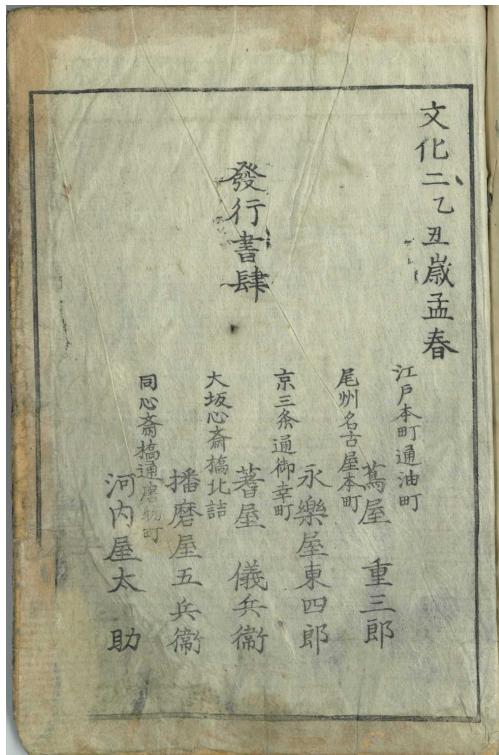 文化二乙丑歳孟春
發行書肆
江戸本町通油町
蔦屋 重三郎
尾州名古屋本町
永樂屋東四郎
京三条通御幸町
蓍屋 儀兵衞
大坂心斎橋北詰
播磨屋五兵衞
同心斎橋通唐物町
河内屋太 助